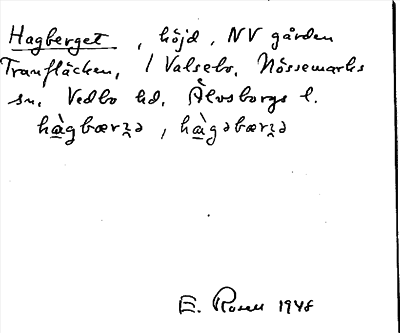 Hagberget, höjd, NV gården
Tranfläcken, / Valsebo, Nössemarks
sn, Vedbo hd, Älvsborgs l.
hàgbærʒə, hàgəbærʒə
E. Rosell 1948